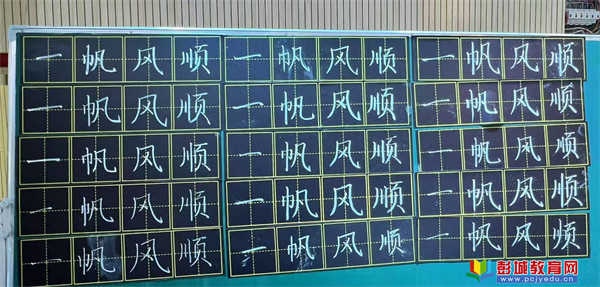 一帆风顺 一帆风顺 一帆风顺
一帆风顺 一帆风顺 一帆风顺
一帆风顺 一帆风顺 一帆风顺
一帆风顺 一帆风顺 一帆风顺
一帆风顺 一帆风顺 一帆风顺
彭城教育网
www.pcjyedu.cn